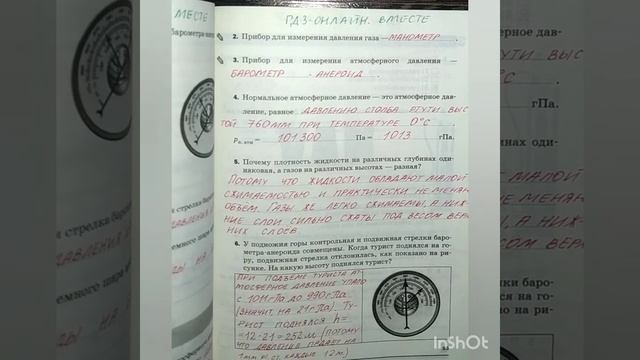 РДЗ-ОНЛАЙН. ВМЕСТЕ
МЕСТЕ
2. Прибор для измерения давления газа — МАНОМЕТР.
3. Прибор для измерения атмосферного давления —
БАРОМЕТР - АНЕРОИД.
4. Нормальное атмосферное давление — это атмосферное дав-
ление, равное ДАВЛЕНИЮ СТОЛБА РТУТИ ВЫС
ТОЙ 760ММ ПРИ ТЕМПЕРАТУРЕ 0°С.
= 101300 Па = 1013 гПа.
5. Почему плотность жидкости на различных глубинах оди-
наковая, а газов на различных высотах — разная?
ПОТОМУ ЧТО ЖИДКОСТИ ОБЛАДАЮТ МАЛОЙ
СЖИМАЕМОСТЬЮ И ПРАКТИЧЕСКИ НЕ МЕНЯЮ
ОБЪЕМ. ГАЗЫ ЖЕ ЛЕГКО СЖИМАЕМЫ, А НИЖ-
НИЕ СЛОИ СИЛЬНО СЖАТЫ ПОД ВЕСОМ ВЕРХ
НИХ СЛОЕВ.
6. У подножия горы контрольная и подвижная стрелки баро-
метра-анероида совмещены. Когда турист поднялся на го-
ру, подвижная стрелка отклонилась, как показано на ри-
сунке. На какую высоту поднялся турист?
ПРИ ПОДЪЕМЕ ТУРИСТА АТ-
МОСФЕРНОЕ ДАВЛЕНИЕ УПАЛО
С 1011 гПа ДО 990 гПа
(ЗНАЧИТ, НА 21 гПа). ТУ-
РИСТ ПОДНЯЛСЯ h=
=12·21=252м. (ПОТОМУ
ЧТО ДАВЛЕНИЕ ПАДАЕТ НА
1мм рт.ст. КАЖДЫЕ 12м)
InShOt